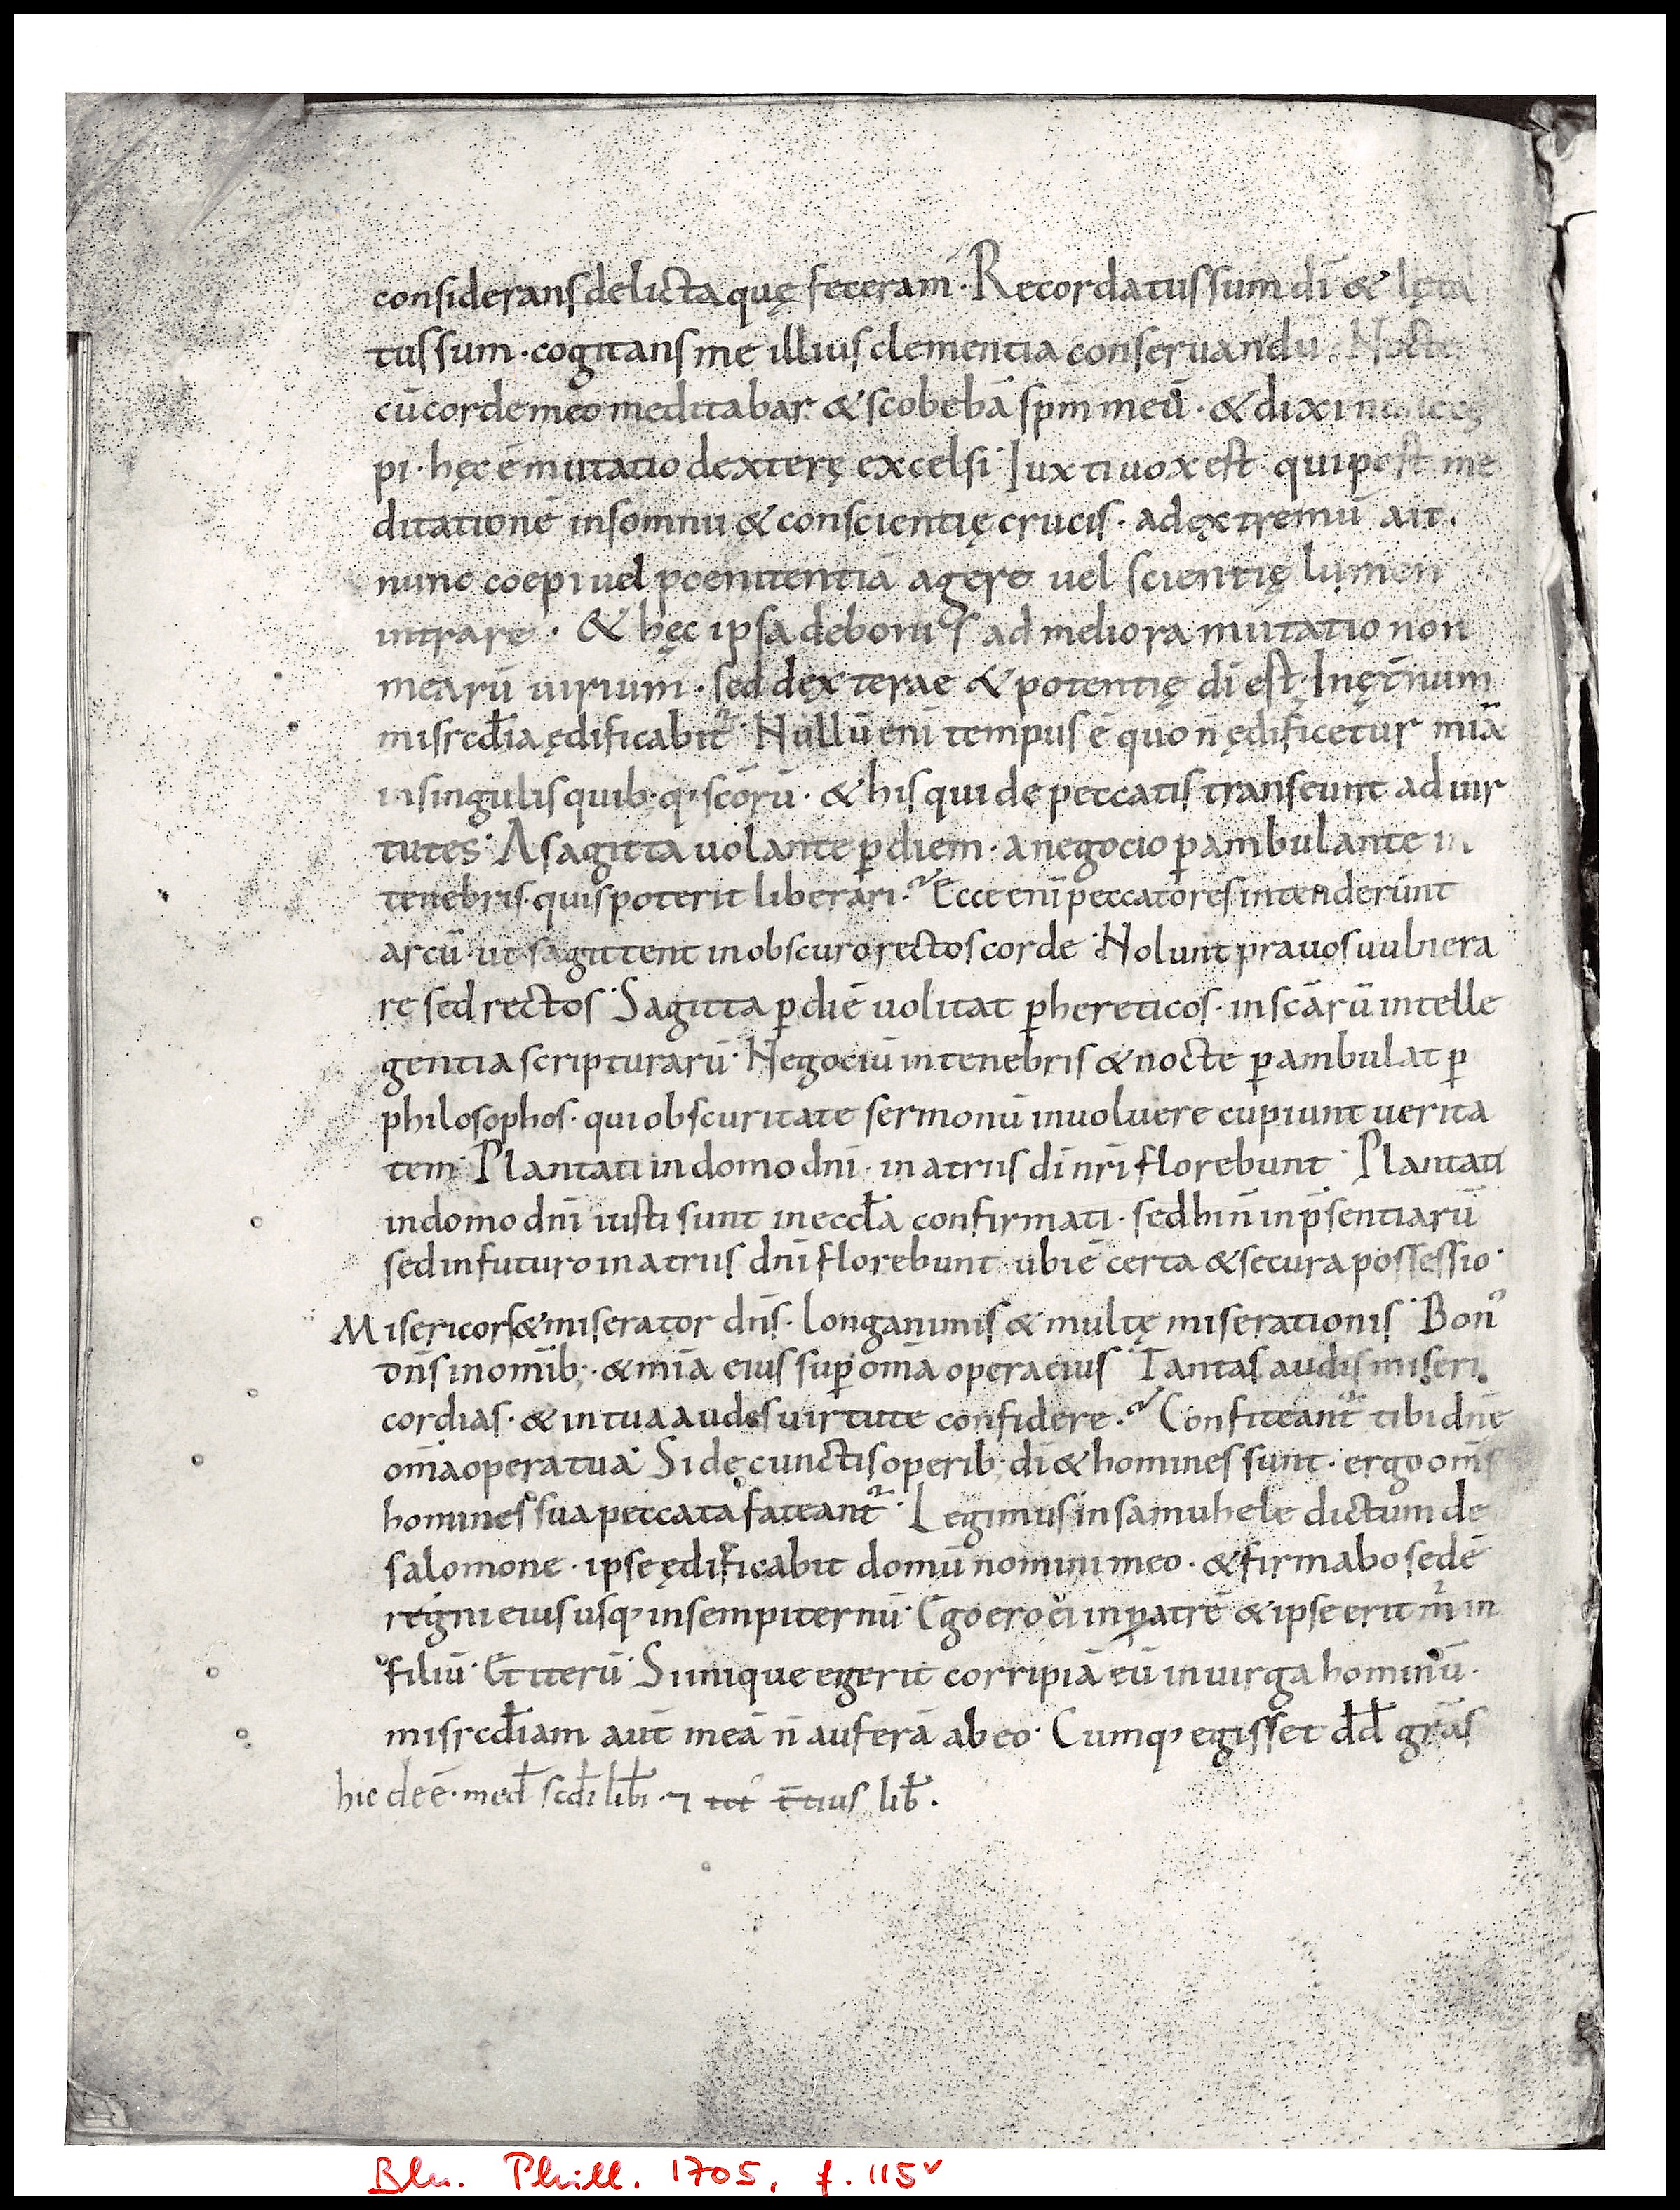 considerans delicta quę feceram̄· Recordatus sum dī & lęta
tus sum· cogitans me illius clementia conseruandū· Nocte
cū corde meo meditabar· & scobebā sp̄m meū· & dixi nunc coę
pi· hęc ē mutatio dexterę excelsi· Iuxti uox est· qui post me
ditationē insomnii & conscientię crucis· ad extremū ait·
nunc coepi uel poenitentiā agere uel scientię lumen
intrare· & hęc ipsa de bonis ad meliora mutatio non
mearū uirium· sed dęxterae & potentię dī est· In ęt̄num
misrcđia ędificabit᷑· Nullū enī tempus ē quo n̄ ędificetur mīa
in singulis quib; q· scōrū· & his qui de peccatis transeunt ad uir
tutes· A sagitta uolante ꝑ diem· a negocio ꝑambulante in
tenebris· quis poterit liberari? Ecce enī peccatores intenderunt
arcū· ut sagittent in obscuro rectos corde· Nolunt prauos uulnera
re sed rectos· Sagitta ꝑ diē uolitat ꝑ hereticos· in scārū intelle
gentia scripturarū· Negociū in tenebris & nocte ꝑambulat ꝑ
philosophos· qui obscuritate sermonū inuoluere cupiunt uerita
tem· Plantati in domo dn̄i· in atriis dī nr̄i florebunt· Plantati
in domo dn̄i iusti sunt in eccła confirmati· sed hi n̄ in p̄sentiarū
sed in futuro in atriis dn̄i florebunt· ubi ē certa & secura possessio·
Misericors & miserator dn̄s· longanimis & multę miserationis· Bon᾽
dn̄s in om̄ib;· & mīa eius suꝑ om̄a opera eius· Tantas audis miseri
cordias· & in tua audes uirtute confidere? Confiteant᷑ tibi dn̄e
om̄a opera tua· Si de cunctis operib; dī & homines sunt· ergo om̄s
homines sua peccata fateant᷑· Legimus in samuhele dictum de
salomone· ipse ędificabit domū nomini meo· & firmabo sedē
regni eius usq· in sempiternū· Ego ero ei in patrē & ipse erit m̄ in
filiū· Et iterū· Si inique egerit corripiā eū in uirga hominū·
misrcđiam aut̄ meā n̄ auferā ab eo· Cumq· egisset đđ grās
hic deē· međ scđi libri· ⁊ tot᾽ t̄cius lib̄·
Bln. Phill. 1705, f. 115v